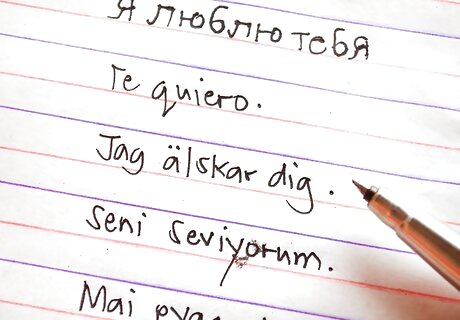 Я люблю тебя
Te quiero.
Jag älskar dig.
Seni seviyorum.
Mai